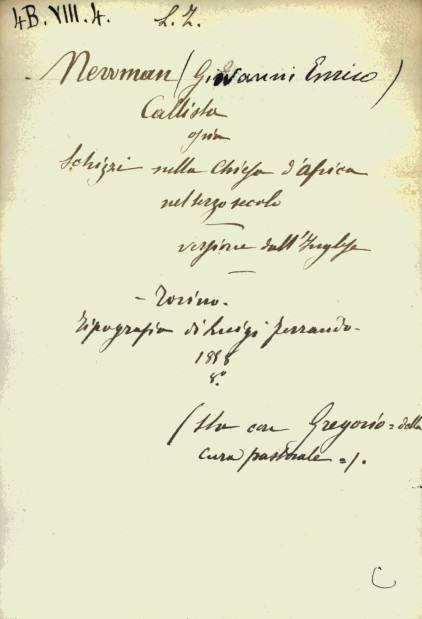 4B. VIII. 4. L. Z.
Newman (Giovanni Enrico)
Callista
ossia
Schizzi sulla Chiesa d'Africa
nel terzo secolo
versione dall'Inglese
- Torino.
Tipografia di Luigi Ferrando.
1858
8.°
(Sta con Gregorio = della
cura pastorale =).
C